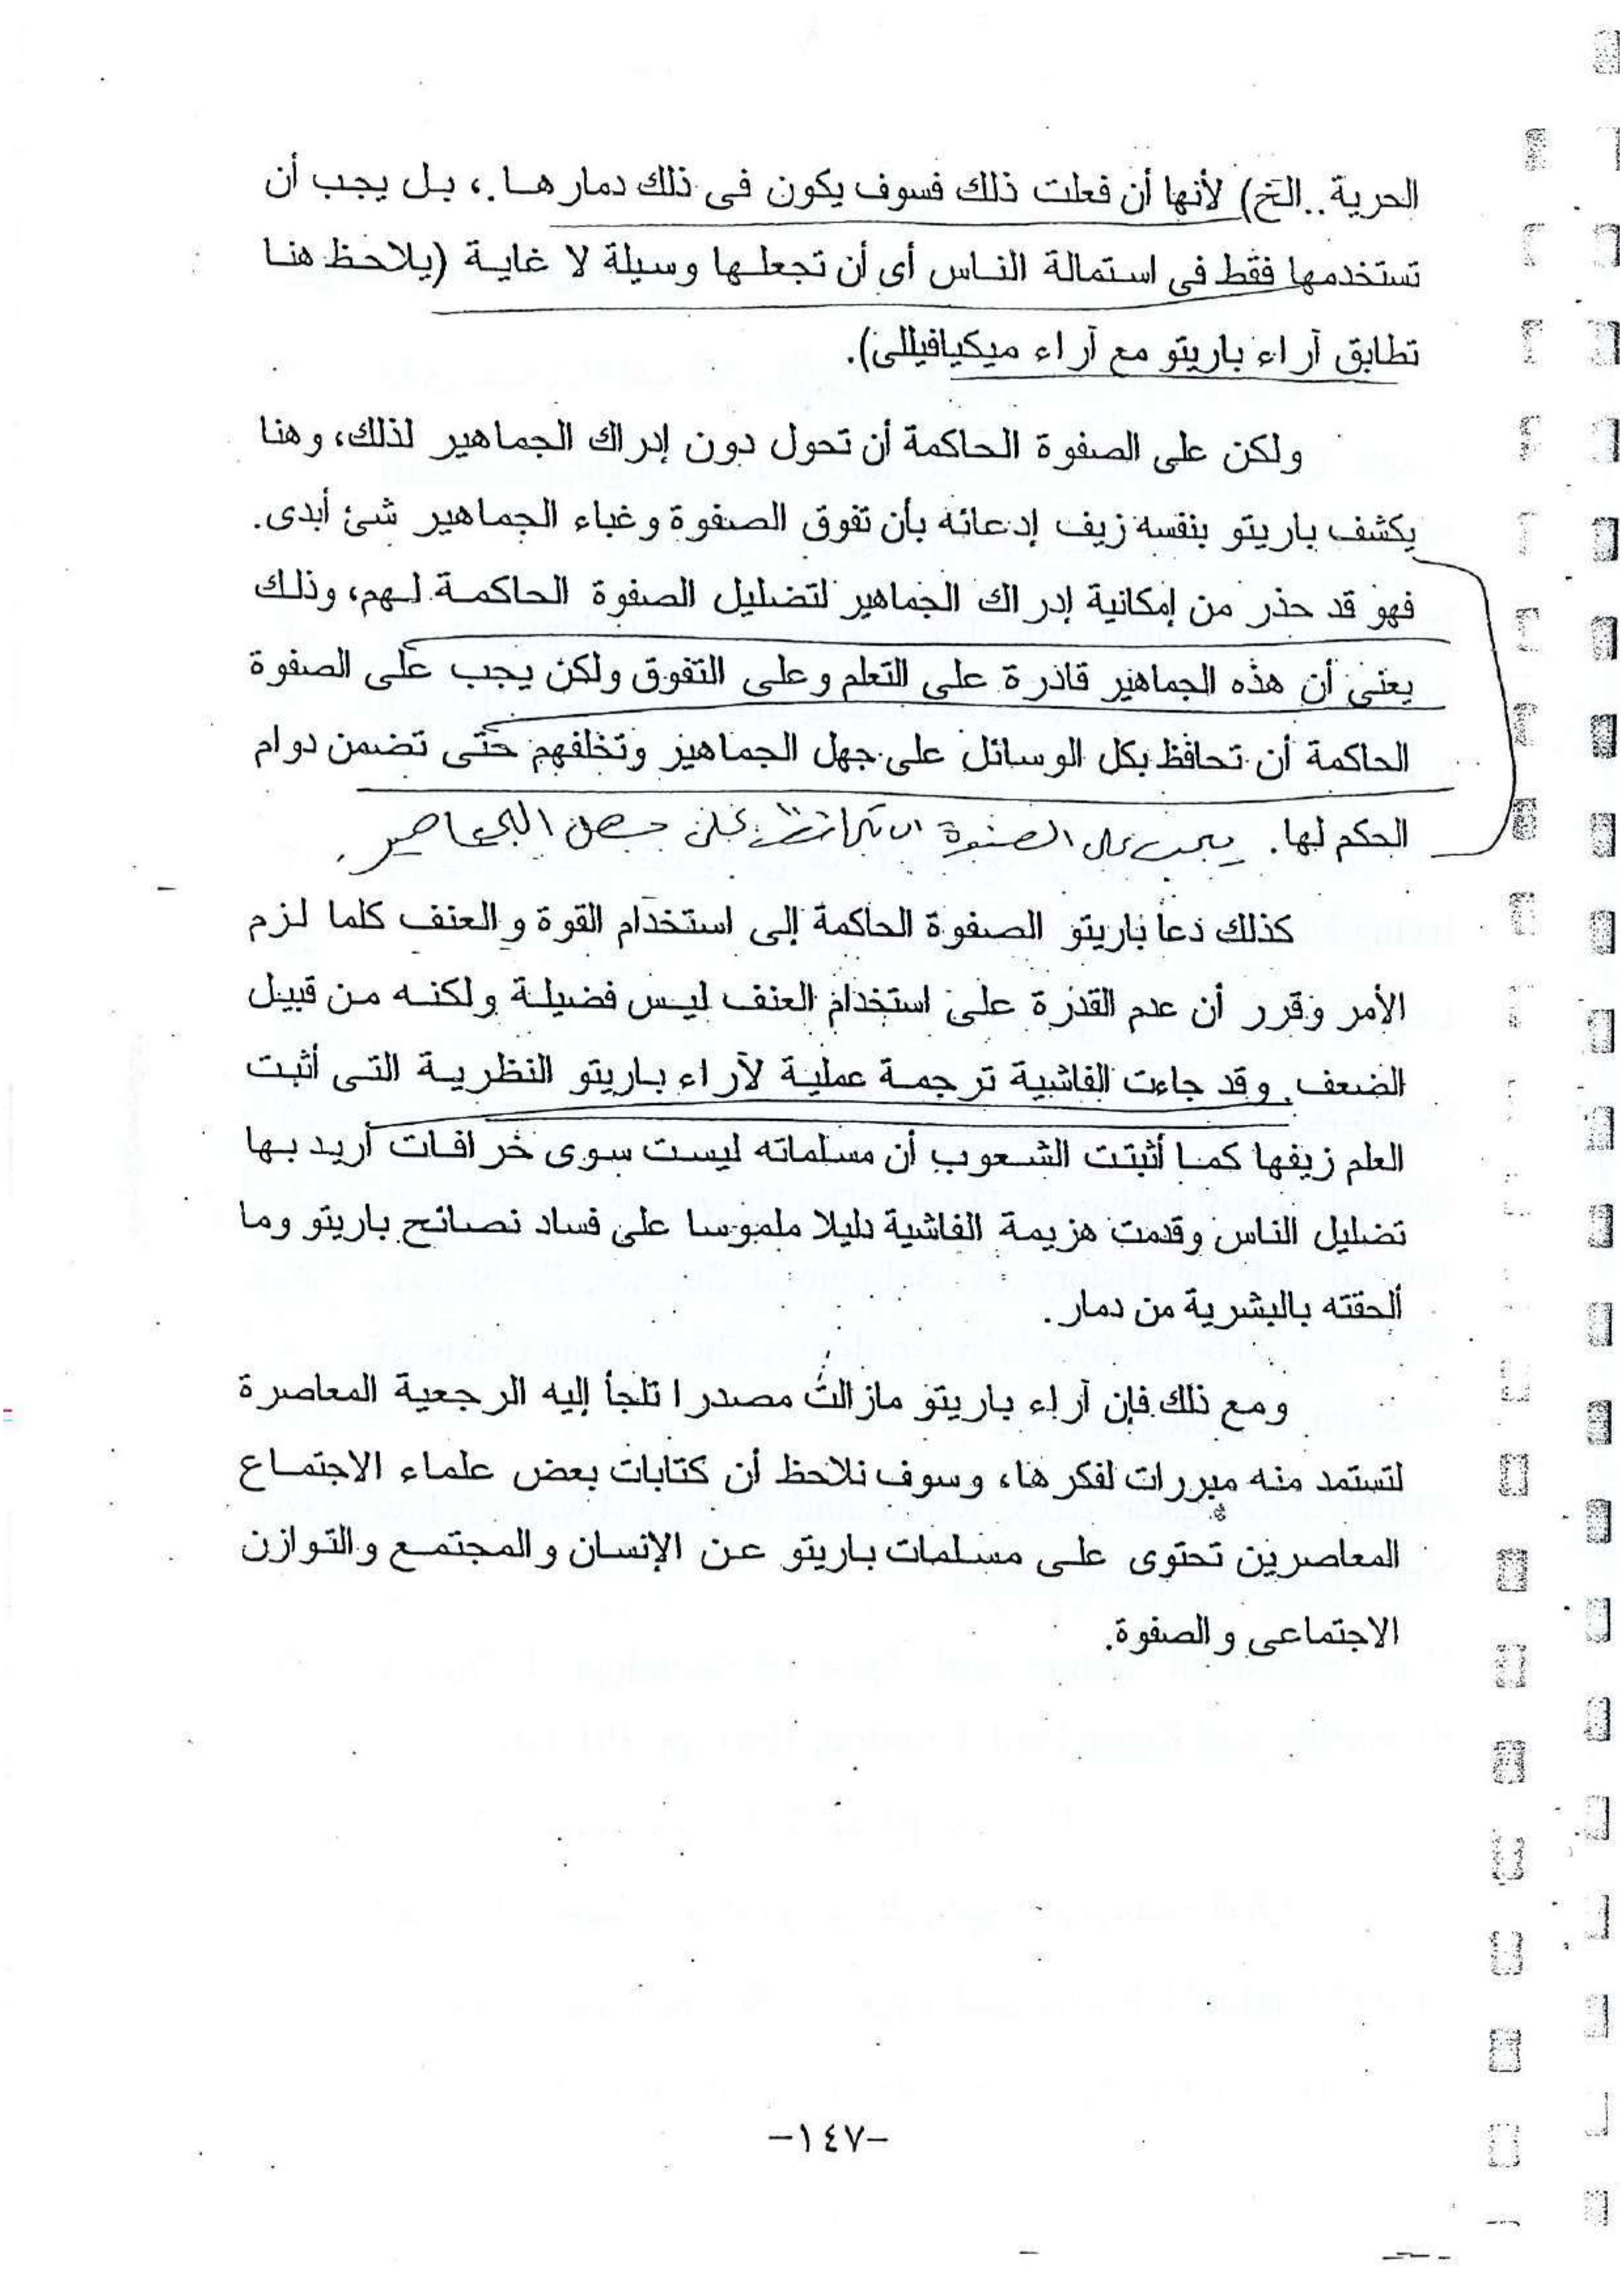 الحرية..الخ) لأنها أن فعلت ذلك فسوف يكون فى ذلك دمارها.، بل يجب أن
تستخدمها فقط فى استمالة الناس أى أن تجعلها وسيلة لا غاية (يلاحظ هنا
تطابق آراء باريتو مع آراء ميكيافيللى).
ولكن على الصفوة الحاكمة أن تحول دون إدراك الجماهير لذلك، وهنا
يكشف باريتو بنفسه زيف إدعائه بأن تفوق الصفوة وغباء الجماهير شئ أبدى.
فهو قد حذر من إمكانية إدراك الجماهير لتضليل الصفوة الحاكمة لهم، وذلك
يعنى أن هذه الجماهير قادرة على التعلم وعلى التفوق ولكن يجب على الصفوة
الحاكمة أن تحافظ بكل الوسائل على جهل الجماهير وتخلفهم حتى تضمن دوام
الحكم لها. يجب على الصفوة على جهل الجماهير.
كذلك دعا باريتو الصفوة الحاكمة إلى استخدام القوة والعنف كلما لزم
الأمر وقرر أن عدم القدرة على استخدام العنف ليس فضيلة ولكنه من قبيل
الضعف. وقد جاءت الفاشية ترجمة عملية لآراء باريتو النظرية التى أثبت
العلم زيفها كما أثبتت الشعوب أن مسلماته ليست سوى خرافات أريد بها
تضليل الناس وقدمت هزيمة الفاشية دليلا ملموسا على فساد نصائح باريتو وما
ألحقته بالبشرية من دمار.
ومع ذلك فإن آراء باريتو مازالت مصدرا تلجأ إليه الرجعية المعاصرة
لتستمد منه مبررات لفكرها، وسوف نلاحظ أن كتابات بعض علماء الاجتماع
المعاصرين تحتوى على مسلمات باريتو عن الإنسان والمجتمع والتوازن
الاجتماعى والصفوة.
-١٤٧-